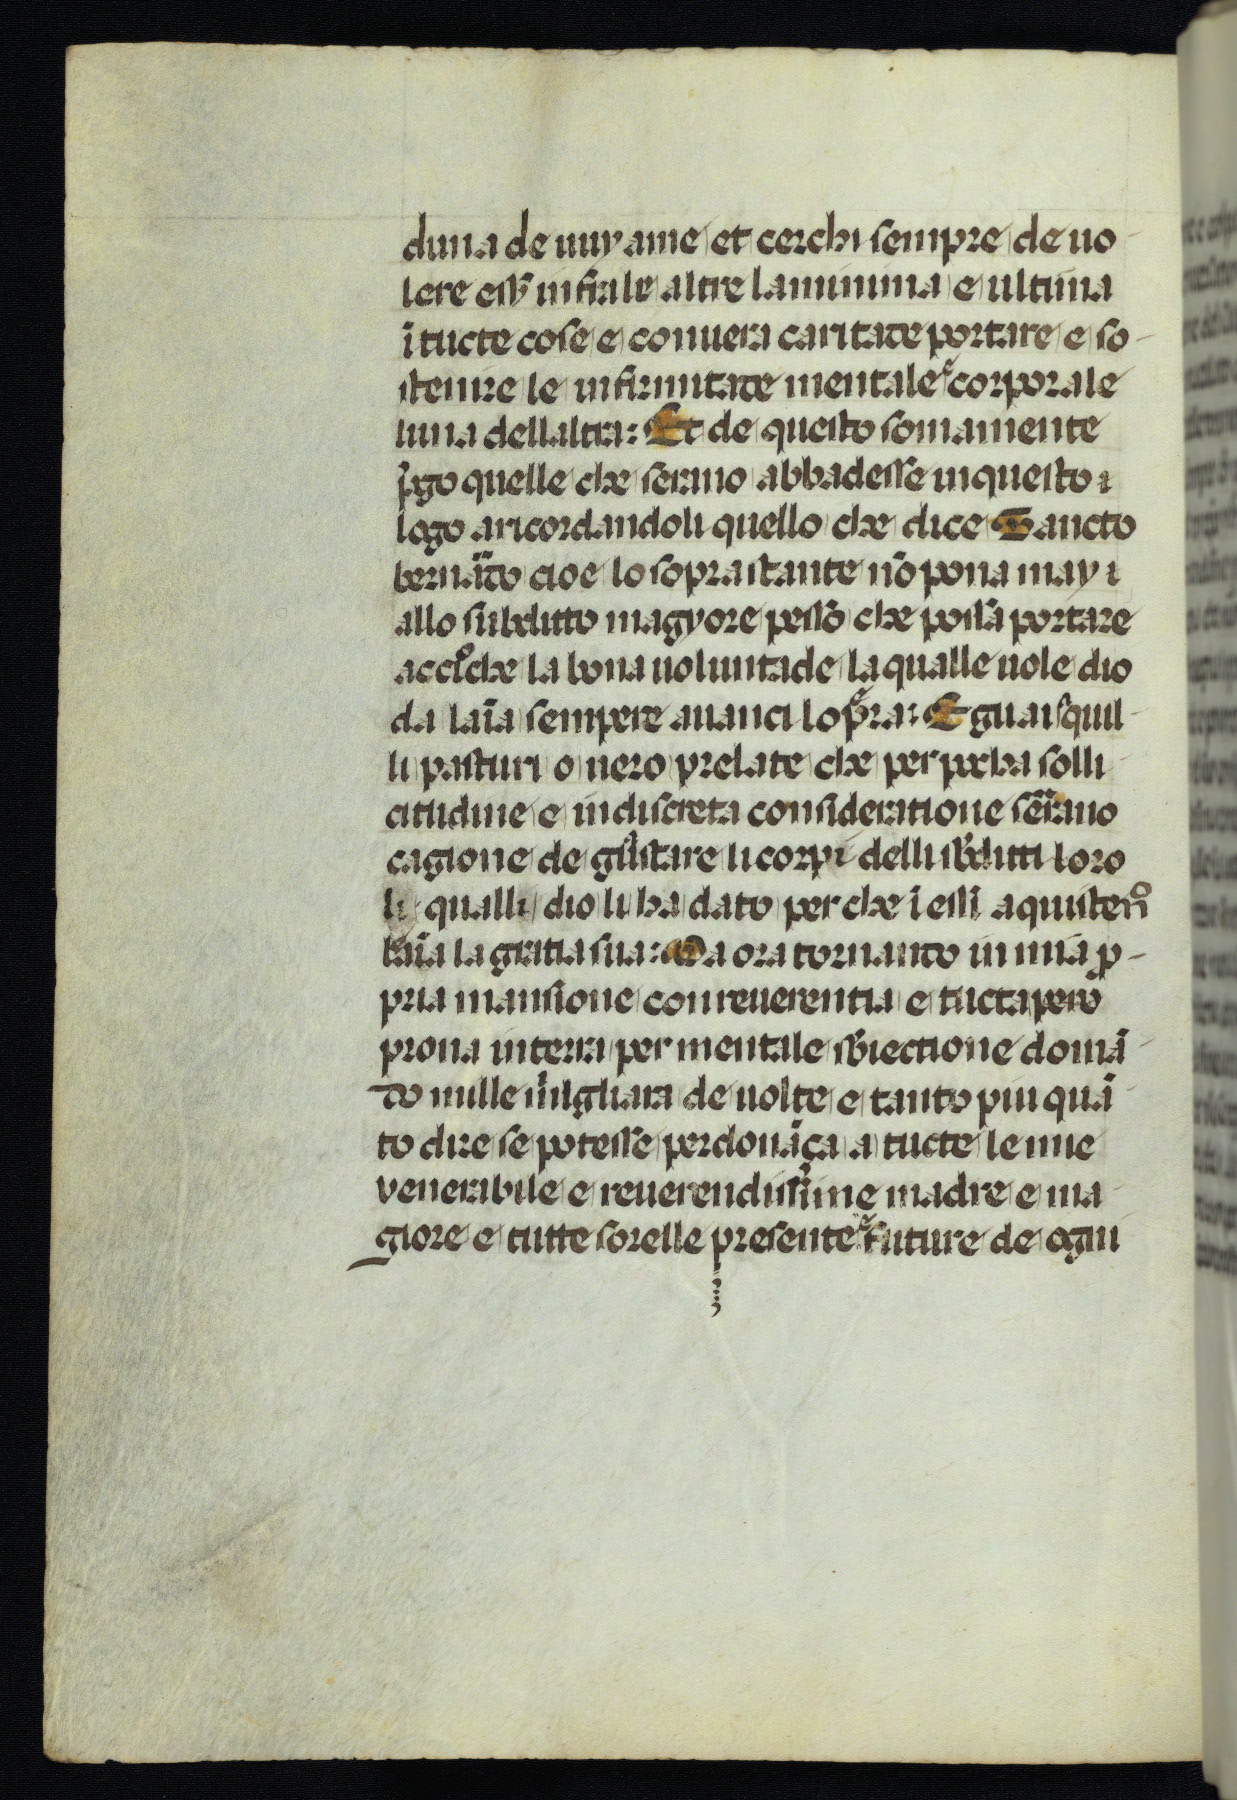 duna de uuy ame et cerchi sempre de uo
lere ess̉ infra le altre la minima e ultima
ĩ tucte cose e con uera caritate portare e so-
stenire le infirmitate mentale ⁊ corporale
luna dellaltra: Et de questo somamente
p̉go quelle che serano abbadesse in questo ⁊
logo aricordandoli quello che dice Sancto
bernãdo cioe lo soprastante nõ pona may ⁊
allo subditto magyore pesso che possa portare
accioche la bona uoluntade la qualle uole dio
da laĩa sempere auanci lop̃ra: E guai ⁊ quil
li pasturi o uero prelate che per pocha solli
citudine e indiscreta consideratione serãno
cagione de guastare li corpi delli sb̃ditti loro
li qualli dio li ha dato per che ĩ essi aquisteno
laĩa la gratia sua: Ma ora tornando in mia p̱-
pria mansione con reuerentia e tucta pero
prona in terra per mentale sb̃iectione domã
do mille migliara de uolte e tanto piu quã
to dire se potesse perdonãça a tucte le mie
venerabile e reuerendissime madre e ma
giore e tutte sorelle presente ⁊ future de ogni